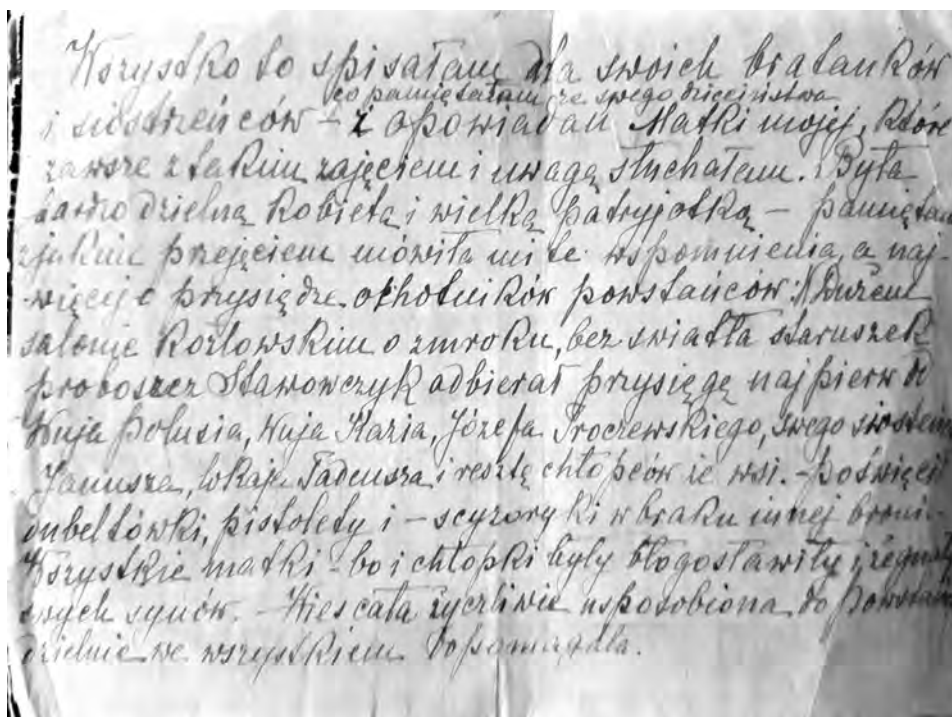 Wszystko to spisałam dla swoich bratanków
co pamiętałam ze swego dzieciństwa
i siostrzeńców – z opowiadań Matki mojej, któr
zawsze z takim zajęciem i uwagą słuchałam. Była
bardzo dzielną kobietą i wielką patryjotką – pamięta
z jakim przejęciem mówiła mi te wspomnienia, a naj-
więcej o przysiędze ochotników powstańców: W Dużem
salonie Kozłowskim o zmroku, bez światła staruszek
proboszcz Stawowczyk odbierał przysięgę najpierw od
Wuja Polusia, Wuja Kazia, Józefa Troczewskiego, swego siostrzeń
Janusza, lokaja Tadeusza i resztę chłopców ze wsi. – poświęci
dubeltówki, pistolety i – scyzoryki w braku innej broni –
Wszystkie matki – bo i chłopki były błogosławiły i żegnały
swych synów. – Wieś cała życzliwie usposobiona do powstań
dzielnie we wszystkiem dopomagała.